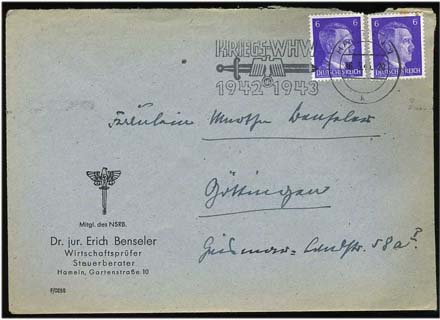 KRIEGS-WHW
1942 1943
6 6
DEUTSCHES REICH
6 6
DEUTSCHES REICH
Fräulein Martha Benseler
Göttingen
Geismar-Landstr. 58a I
Mitgl. des NSRB.
Dr. jur. Erich Benseler
Wirtschaftsprüfer
Steuerberater
Hameln, Gartenstraße 10